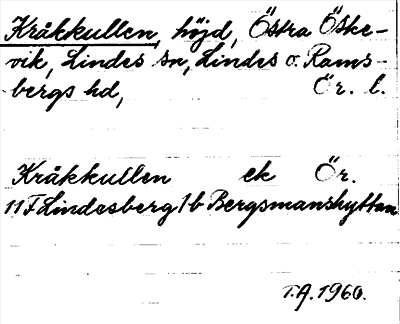 Kråkkullen, höjd, Östra Öske-
vik, Lindes sn, Lindes o. Rams-
bergs hd, Ör. l.
Kråkkullen ek Ör.
11F Lindesberg 1b Bergsmanshyttan
T.A. 1960.